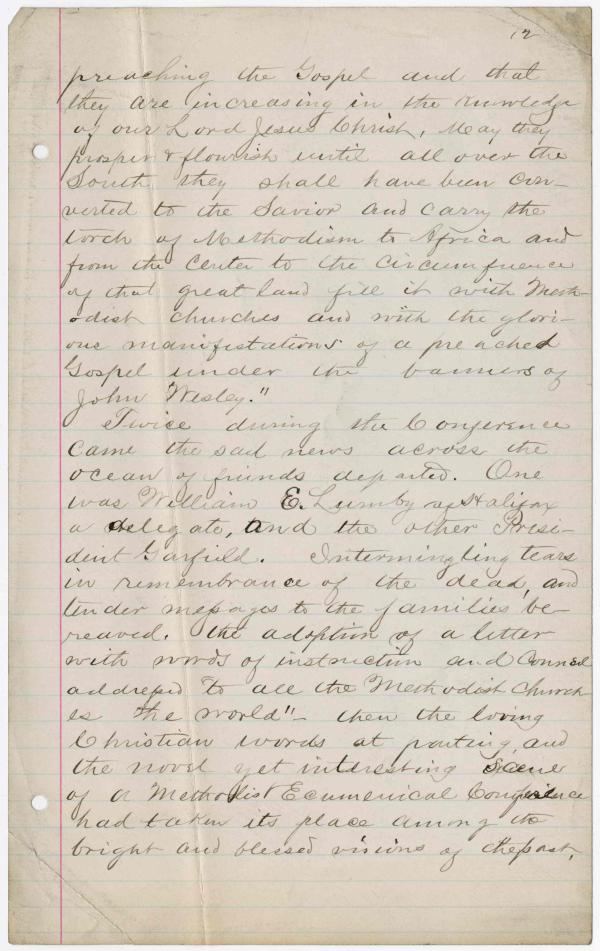 12
preaching the Gospel and that
they are increasing in the knowledge
of our Lord Jesus Christ. May they
prosper & flourish until all over the
South they shall have been con-
verted to the Savior and carry the
torch of Methodism to Africa and
from the center to the circumference
of that great land fill it with Meth-
odist churches and with the glori-
ous manifestations of a preached
Gospel under the banners of
John Wesley."
Twice during the Conference
came the sad news across the
ocean of friends departed. One
was William E. Lumby of Halifax
a delegate, and the other Presi-
dent Garfield. Intermingling tears
in remembrance of the dead, and
tender messages to the families be-
reaved. The adoption of a letter
with words of instruction and Counsel
addressed "to all the Methodist Church-
es the world" - then the loving
Christian words at parting, and
the novel yet interesting scene
of a Methodist Ecumenical Conference
had taken its place among the
bright and blessed visions of the past.